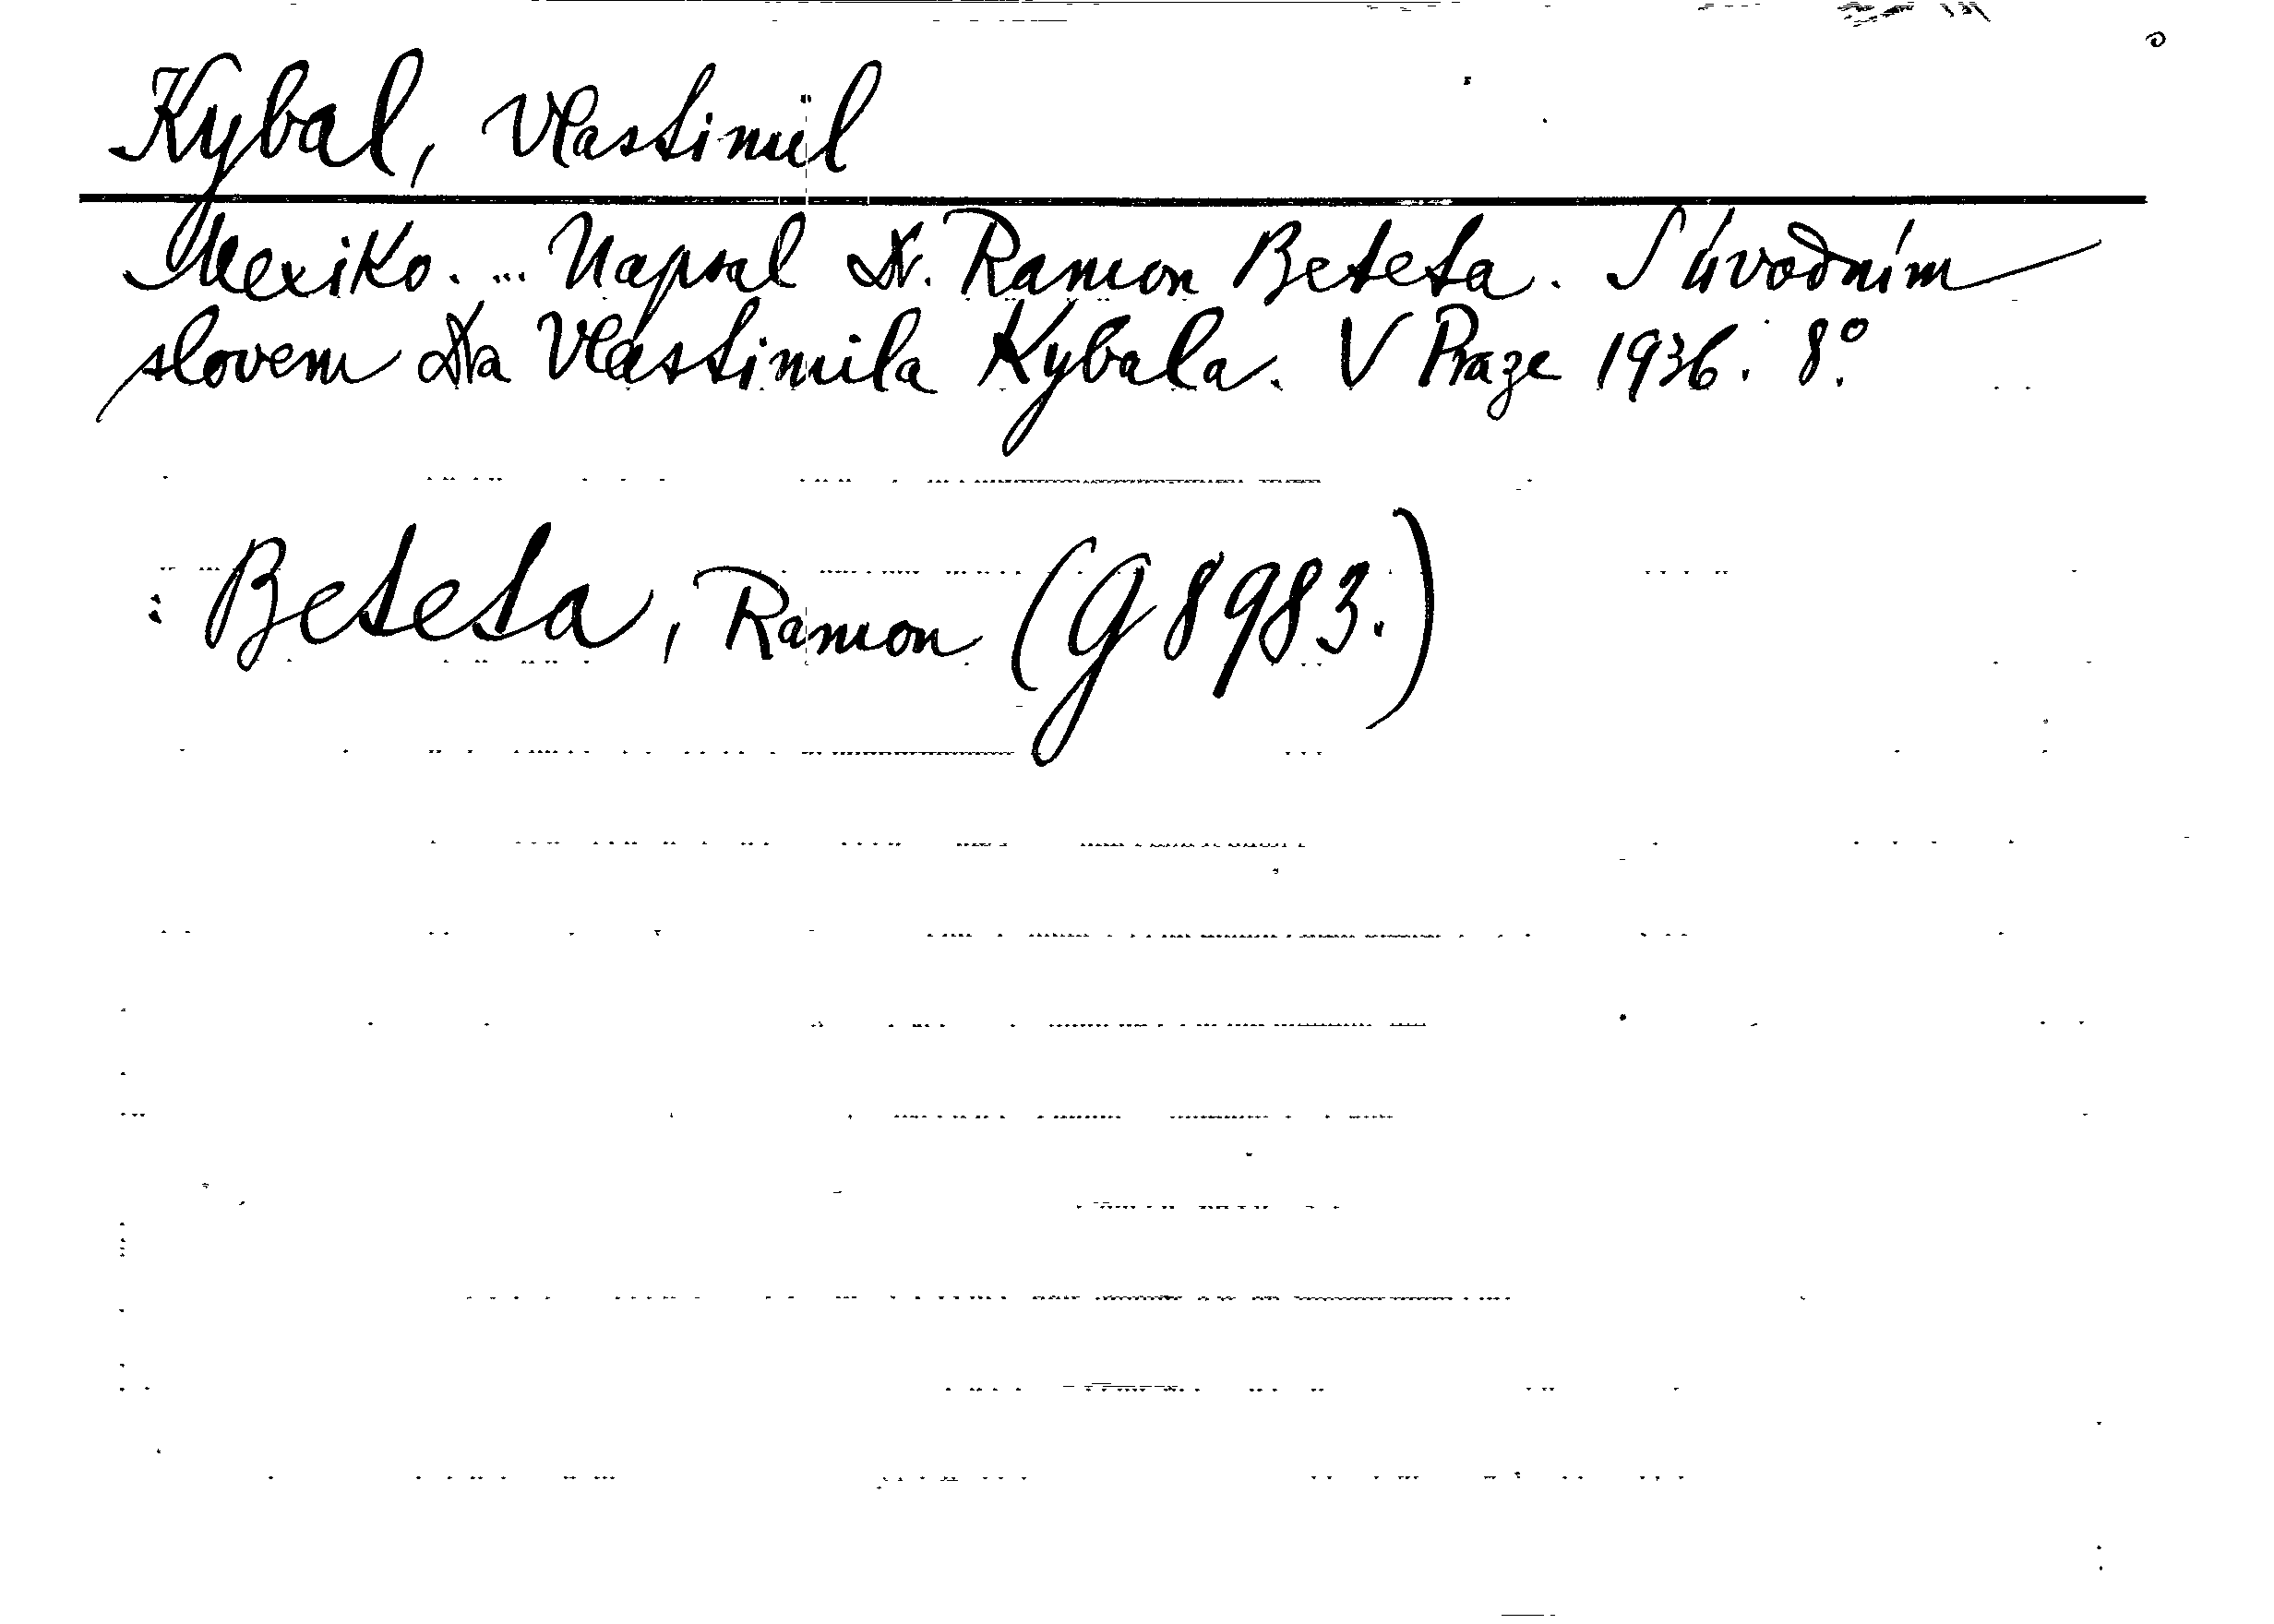 Kybal, Vlastimil
Mexiko. ... Napsal Dr. Ramon Beteta. S úvodním
slovem Dra Vlastimila Kybala. V Praze 1936. 8°.
: Beteta, Ramon (G 8983.)